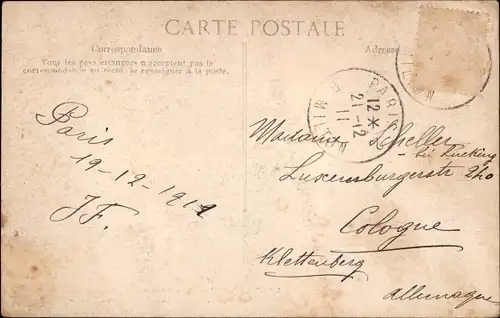 CARTE POSTALE
Correspondance
Tous les pays étrangers n'acceptent pas la
correspondance au recto, se renseigner à la poste.
Adresse
PARIS
12 *
21-12
11
R. MILTON
MILTON
Paris
19-12-1911
JF.
Madame Scheller
- bei Lucking
Luxemburgerstr 240
Cologne
Klettenberg
Allemagne